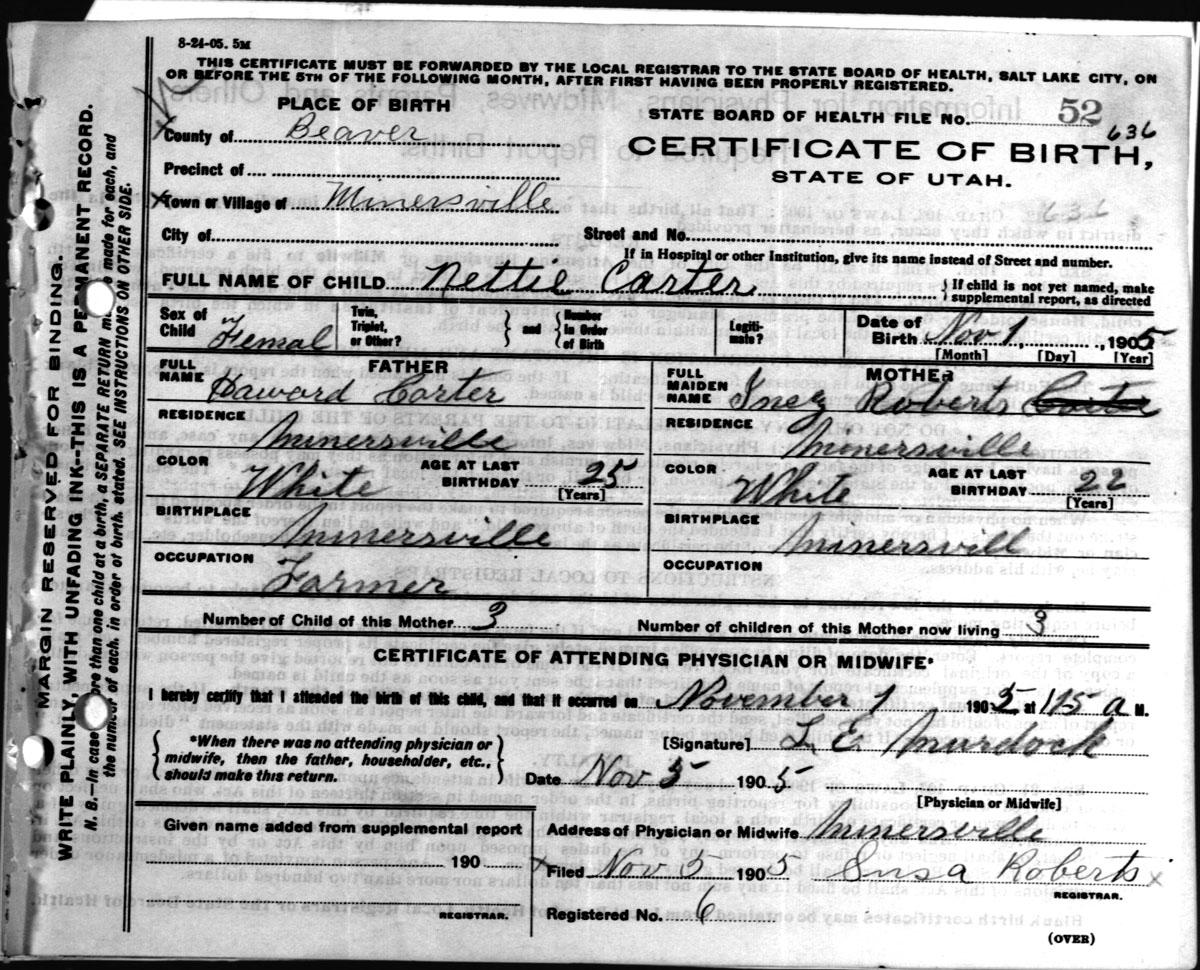 8-24-05. 5M
THIS CERTIFICATE MUST BE FORWARDED BY THE LOCAL REGISTRAR TO THE STATE BOARD OF HEALTH, SALT LAKE CITY, ON
OR BEFORE THE 5TH OF THE FOLLOWING MONTH, AFTER FIRST HAVING BEEN PROPERLY REGISTERED.
PLACE OF BIRTH
STATE BOARD OF HEALTH FILE No. 52
636
County of Beaver
CERTIFICATE OF BIRTH,
STATE OF UTAH.
Precinct of
Town or Village of Minersville
636
City of
Street and No.
If in Hospital or other Institution, give its name instead of Street and number.
FULL NAME OF CHILD Nettie Carter { If child is not yet named, make supplemental report, as directed
Sex of Child Femal
Twin, Triplet, or Other? } and { Number in Order of Birth
Legiti- mate?
Date of Birth Nov 1, 1905
[Month] [Day] [Year]
FATHER
FULL NAME
Carter
RESIDENCE
Minersville
COLOR White
AGE AT LAST BIRTHDAY 25
[Years]
BIRTHPLACE
Minersville
OCCUPATION
Farmer
MOTHER
FULL MAIDEN NAME Inez Roberts Carter
RESIDENCE
Minersville
COLOR White
AGE AT LAST BIRTHDAY 22
[Years]
BIRTHPLACE
Minersvill
OCCUPATION
Number of Child of this Mother 3
Number of children of this Mother now living 3
CERTIFICATE OF ATTENDING PHYSICIAN OR MIDWIFE*
I hereby certify that I attended the birth of this child, and that it occurred on November 1 1905 at 1 15 a M.
{ *When there was no attending physician or midwife, then the father, householder, etc., should make this return. }
[Signature] L. E. Murdock
Date Nov 5 1905
[Physician or Midwife]
Given name added from supplemental report
190
REGISTRAR.
Address of Physician or Midwife Minersville
Filed Nov 5 1905 Susa Roberts
REGISTRAR.
Registered No. 6
(OVER)
MARGIN RESERVED FOR BINDING.
WRITE PLAINLY, WITH UNFADING INK--THIS IS A PERMANENT RECORD.
N. B.—In case more than one child at a birth, a SEPARATE RETURN must be made for each, and
the number of each, in order of birth, stated. SEE INSTRUCTIONS ON OTHER SIDE.